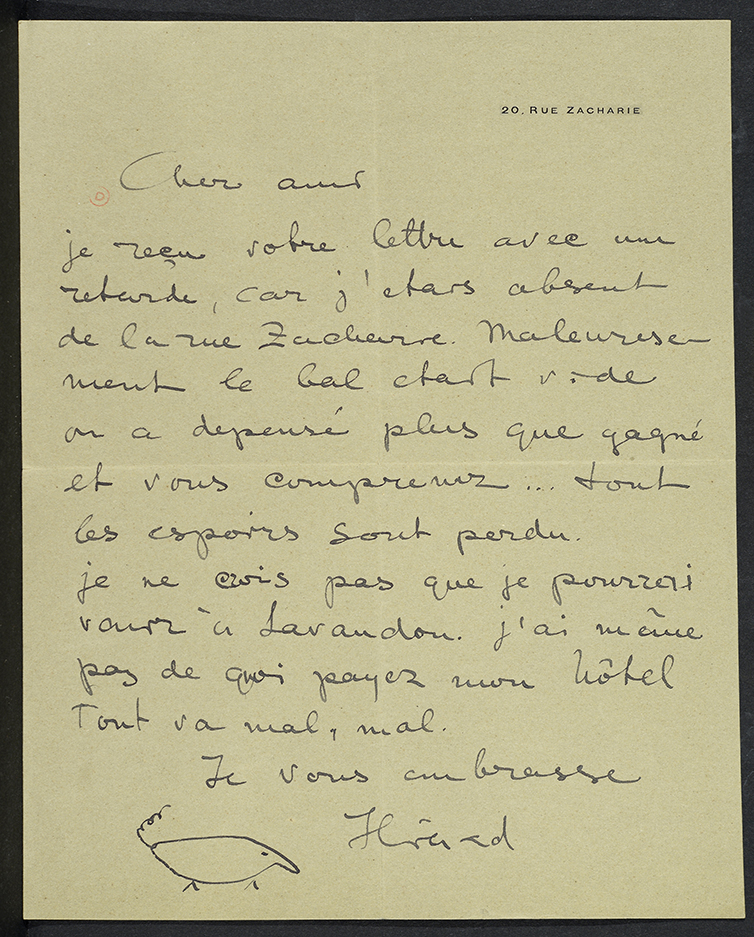 20, RUE ZACHARIE
Cher ami
je reçu votre lettre avec une
retarde, car j'etais absent
de la rue Zacharie. Maleurese-
ment le bal etait vide
on a depensé plus que gagné
et vous comprenez ... tout
les espoirs sont perdu.
je ne crois pas que je pourrai
venir à Lavandou. j'ai même
pas de quoi payez mon hôtel
Tout va mal, mal.
Je vous embrasse